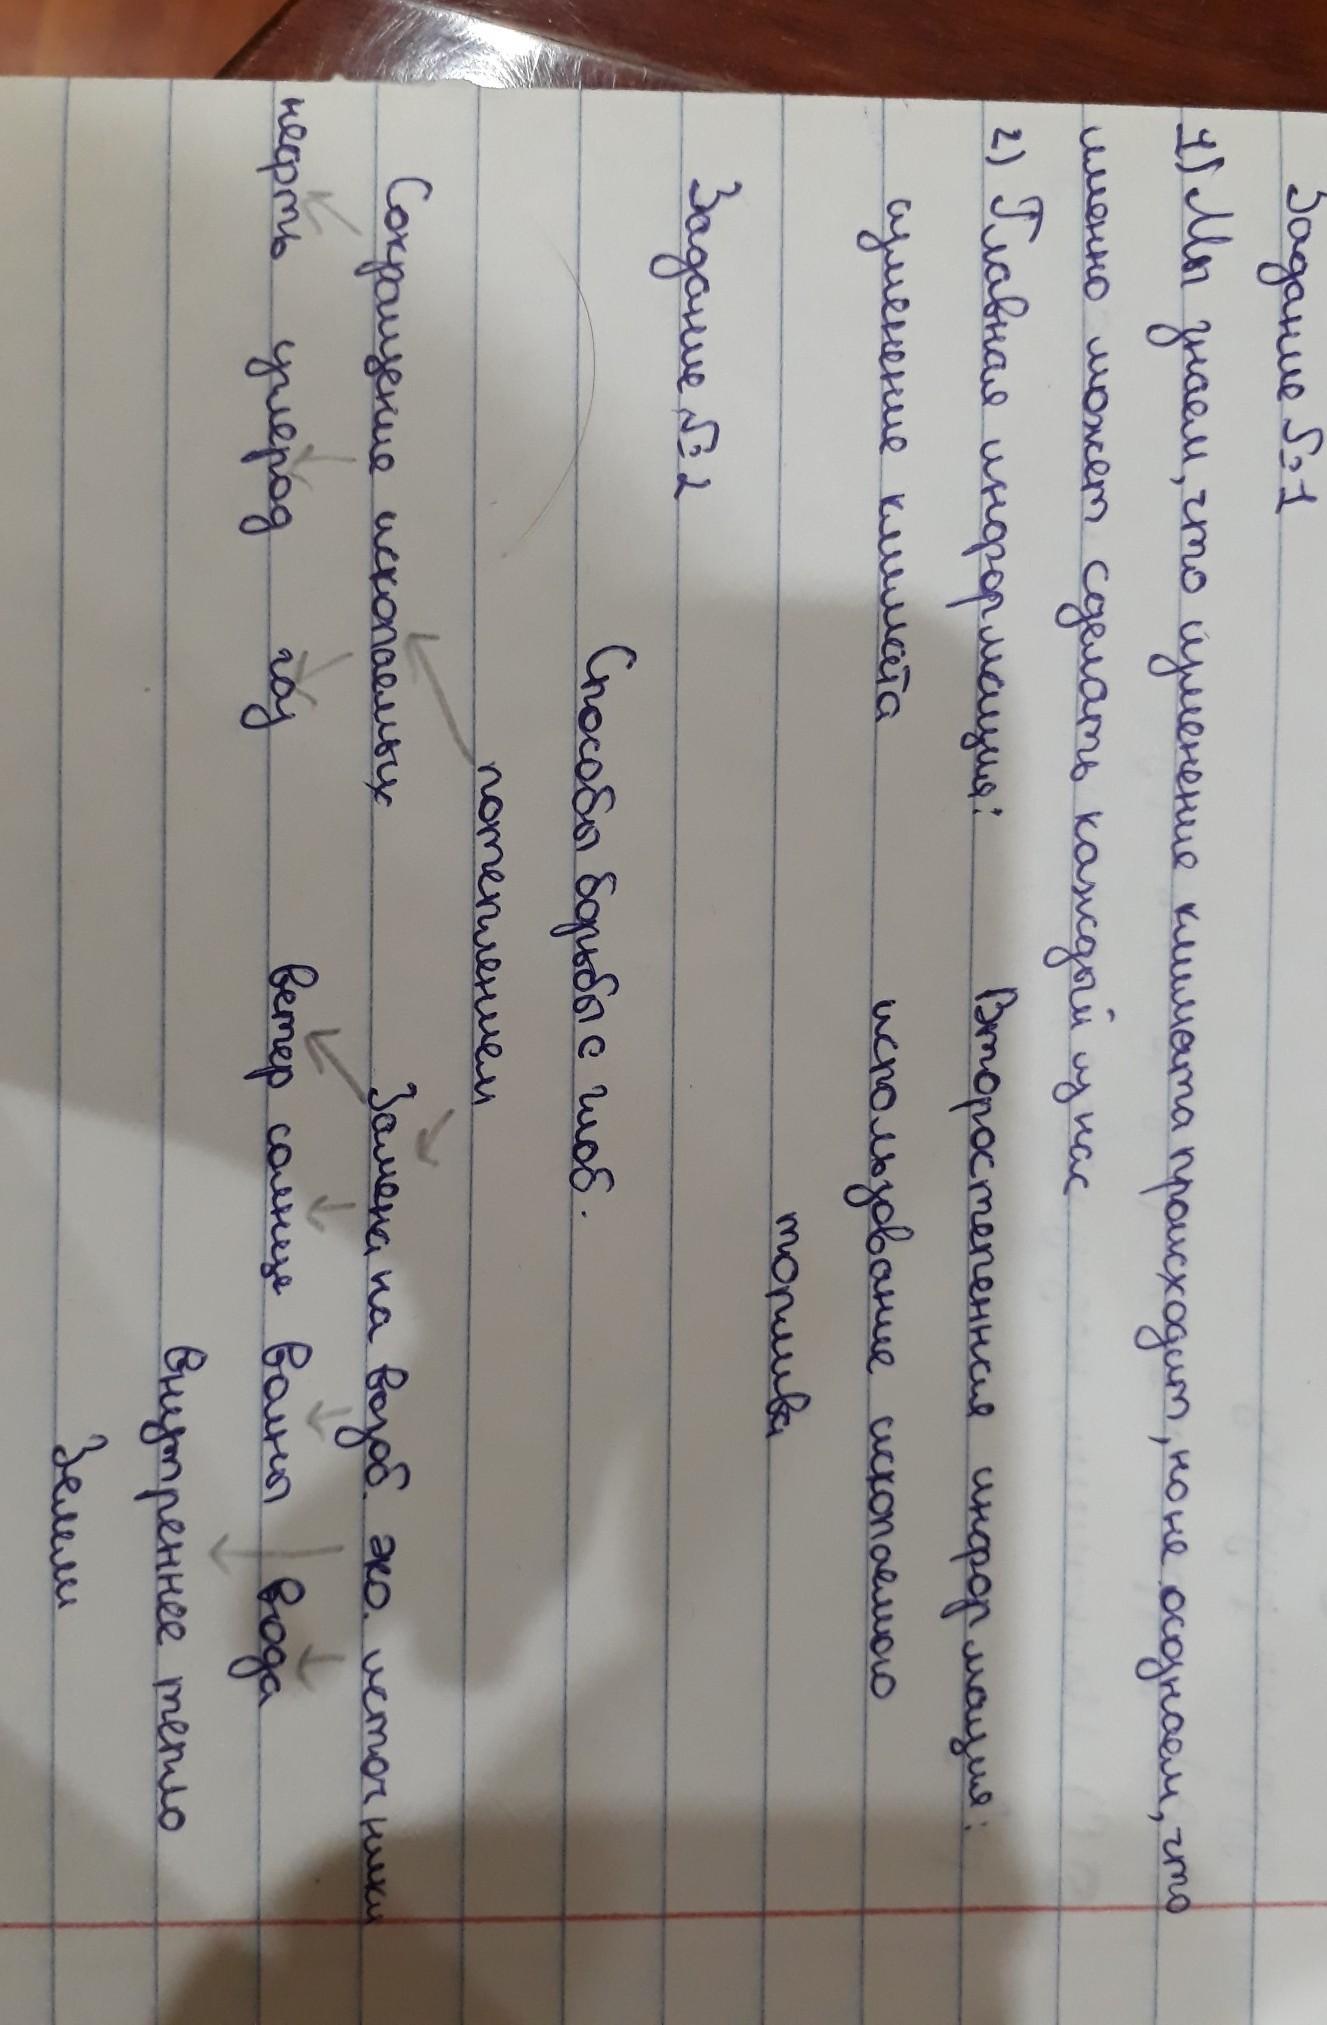 Задание №1
1) Мы знаем, что изменение климата происходит, но не осознаем, что
именно может сделать каждый из нас
2) Главная информация: Второстепенная информация:
изменение климата использование ископаемого
топлива
Задание №2
Способы борьбы с глоб.
потеплением
Сокращение ископаемых Замена на возоб. эко. источники
нефть углерод газ ветер солнце волны вода
внутреннее тепло
Земли